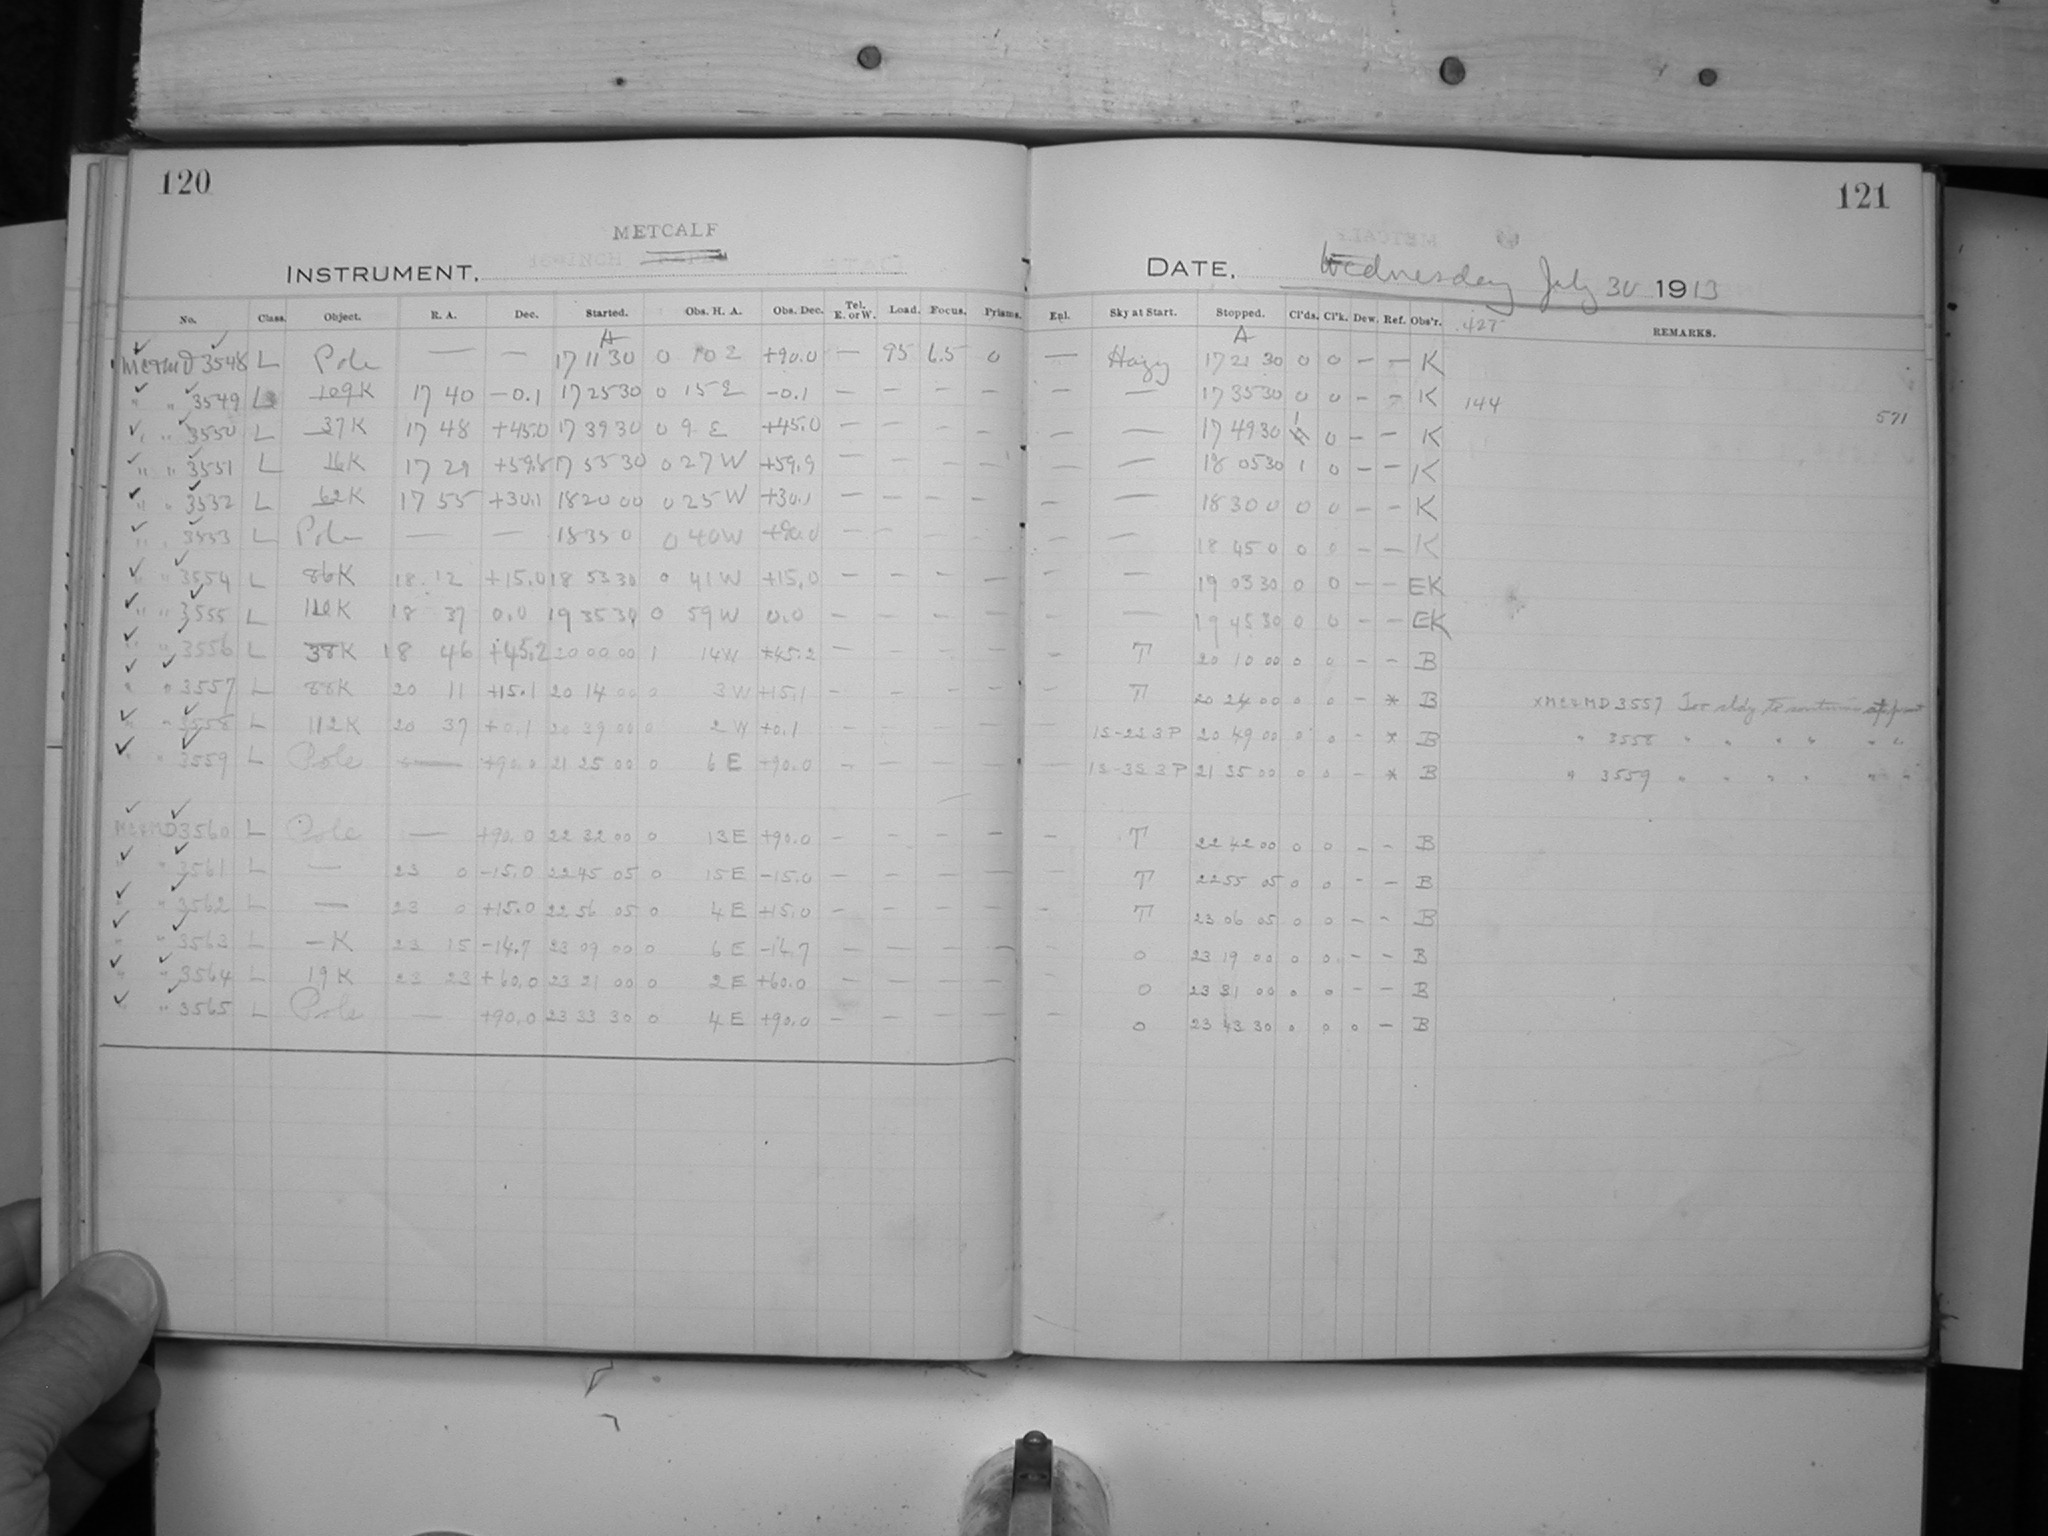 120
METCALF
INSTRUMENT.
No. Class. Object. R. A. Dec. Started. Obs. H. A. Obs. Dec. Tel. E. or W. Load. Focus. Prisms.
A
MC & MD 3548 L Pole — — 17 11 30 0 10 E +90.0 — 95 6.5 0
" " 3549 L 109K 17 40 -0.1 17 25 30 0 15 E -0.1 — — — —
" " 3550 L 37K 17 48 +45.0 17 39 30 0 9 E +45.0 — — — —
" " 3551 L 16K 17 29 +59.8 17 55 30 0 27 W +59.9 — — — —
" " 3552 L 62K 17 55 +30.1 18 20 00 0 25 W +30.1 — — — —
" " 3553 L Pole — — 18 35 0 0 40 W +90.0 — — — —
" " 3554 L 86K 18 12 +15.0 18 53 30 0 41 W +15.0 — — — —
" " 3555 L 110K 18 37 0.0 19 35 30 0 59 W 0.0 — — — —
" " 3556 L 38K 18 46 +45.2 20 00 00 1 14 W +45.2 — — — —
" " 3557 L 88K 20 11 +15.1 20 14 00 0 3 W +15.1 — — — —
" " 3558 L 112K 20 37 +0.1 20 39 00 0 2 W +0.1 — — — —
" " 3559 L Pole — +90.0 21 25 00 0 6 E +90.0 — — — —
MC & MD 3560 L Pole — +90.0 22 32 00 0 13 E +90.0 — — — —
" " 3561 L — 23 0 -15.0 22 45 05 0 15 E -15.0 — — — —
" " 3562 L — 23 0 +15.0 22 56 05 0 4 E +15.0 — — — —
" " 3563 L — K 23 15 -14.7 23 09 00 0 6 E -14.7 — — — —
" " 3564 L 19K 23 23 +60.0 23 21 00 0 2 E +60.0 — — — —
" " 3565 L Pole — +90.0 23 33 30 0 4 E +90.0 — — — —
121
DATE. Wednesday July 30 1913
Enl. Sky at Start. Stopped. Cl'ds. Cl'k. Dew. Ref. Obs'r. REMARKS.
A 427
— Hazy 17 21 30 0 0 — — K
— — 17 35 30 0 0 — — K 144
571
— — 17 49 30 1 0 — — K
— — 18 05 30 1 0 — — K
— — 18 30 0 0 0 — — K
— — 18 45 0 0 0 — — K
— — 19 03 30 0 0 — — EK
— — 19 45 30 0 0 — — EK
— T 20 10 00 0 0 — — B
— T 20 24 00 0 0 — * B × MC & MD 3557
— 1S-2S 3P 20 49 00 0 0 — * B " 3558 " " " " " "
— 1S-3S 3P 21 35 00 0 0 — * B " 3559 " " " " " "
— T 22 42 00 0 0 — — B
— T 22 55 05 0 0 — — B
— T 23 06 05 0 0 — — B
— 0 23 19 00 0 0 — — B
— 0 23 31 00 0 0 — — B
— 0 23 43 30 0 0 0 — B